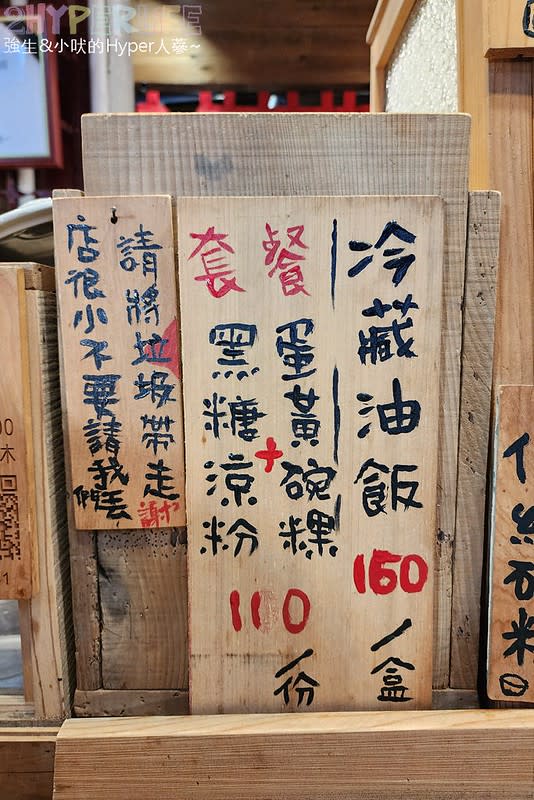 HYPERLIFE
強生&小吠的Hyper人蔘~
冷藏油飯 160/盒
套餐
蛋黃碗粿
+
黑糖涼粉
110/份
請將垃圾帶走
店很小不要請我們丟
謝